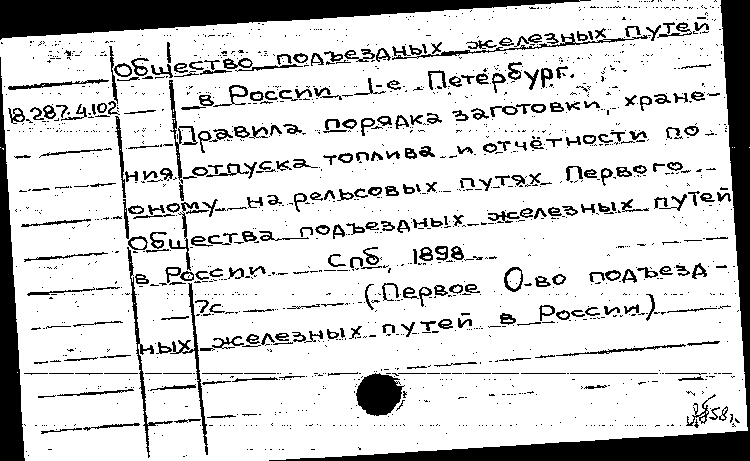 Общество подъездных железных путей
в России, 1-е. Петербург.
18.287.4.102
Правила порядка заготовки, хране-
ния, отпуска топлива и отчётности по
оному на рельсовых путях Первого
Общества подъездных железных путей
в России. Спб, 1898
7с (Первое О-во подъезд-
ных железных путей в России)